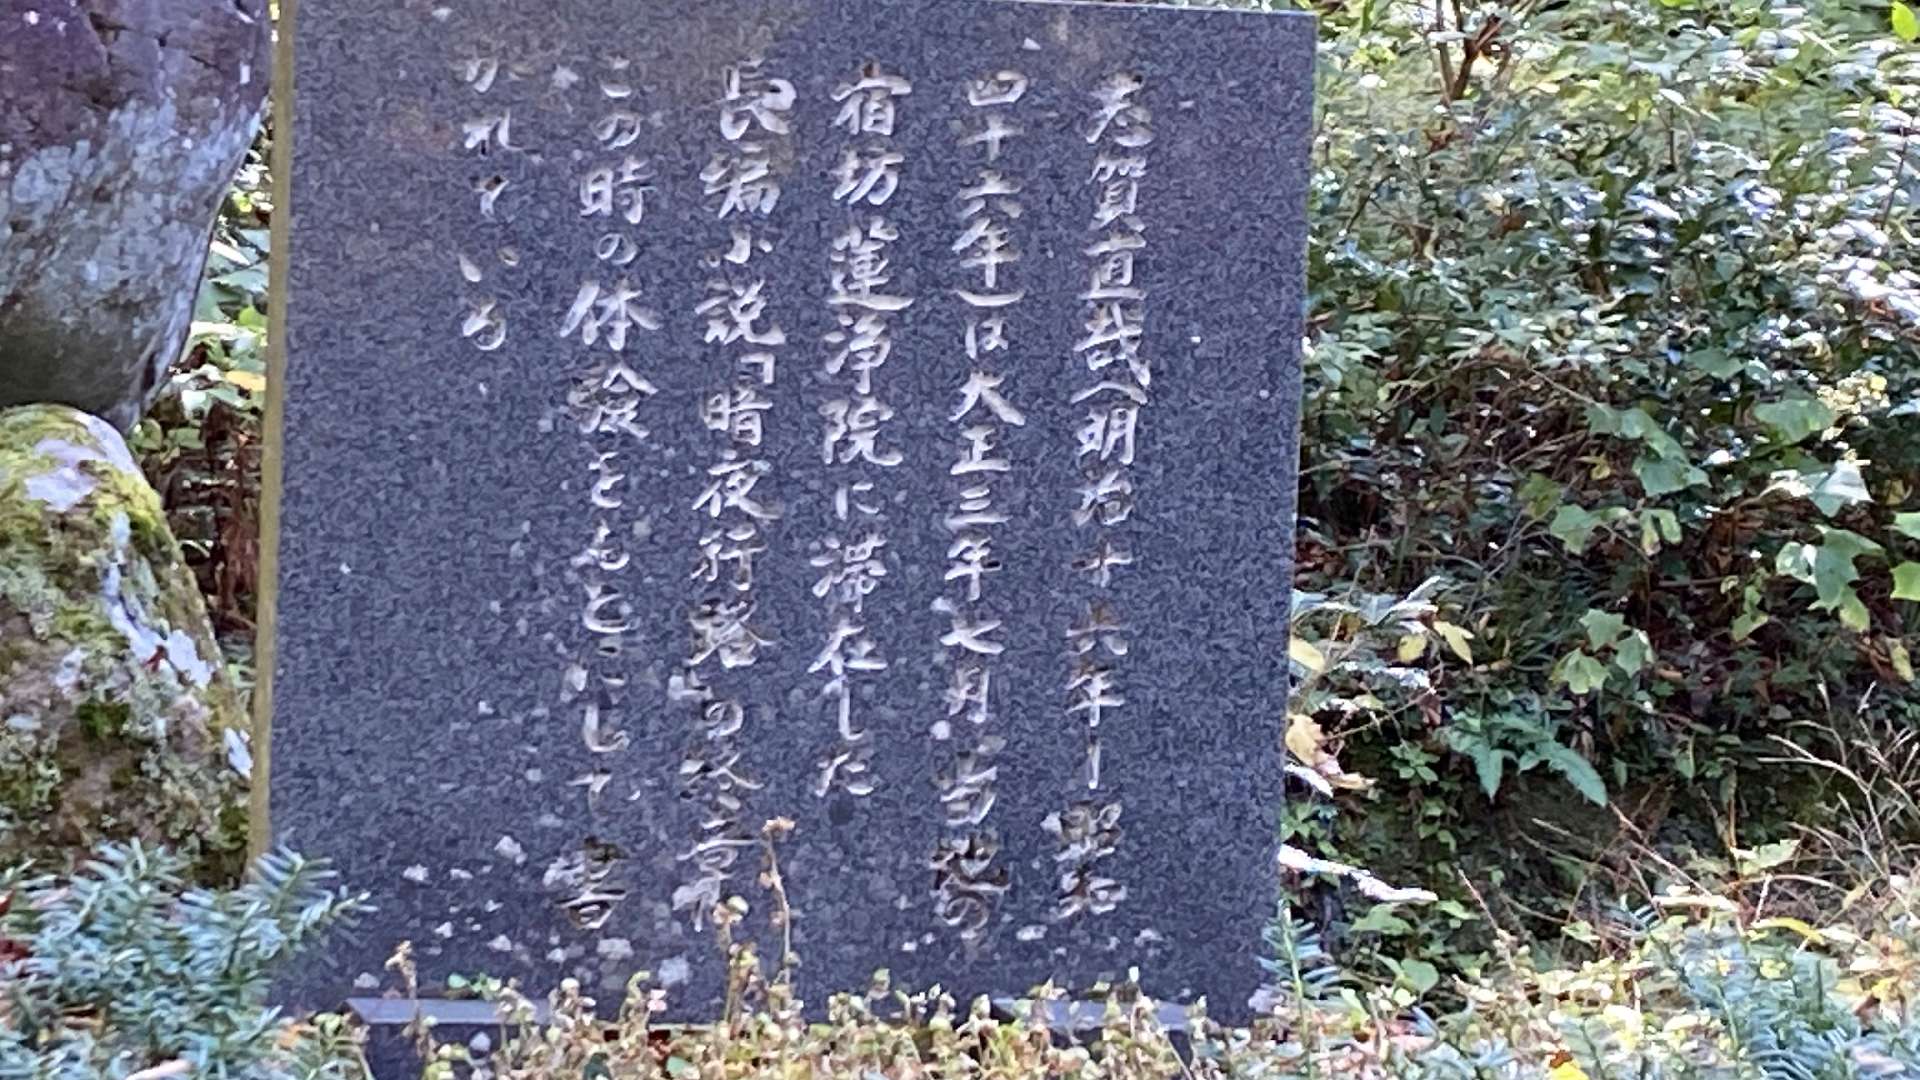 志賀直哉(明治十六年ー昭和
四十六年)は大正三年七月当地の
宿坊蓮浄院に滞在した
長編小説『暗夜行路』の終章が
この時の体験をもとにして書
かれている